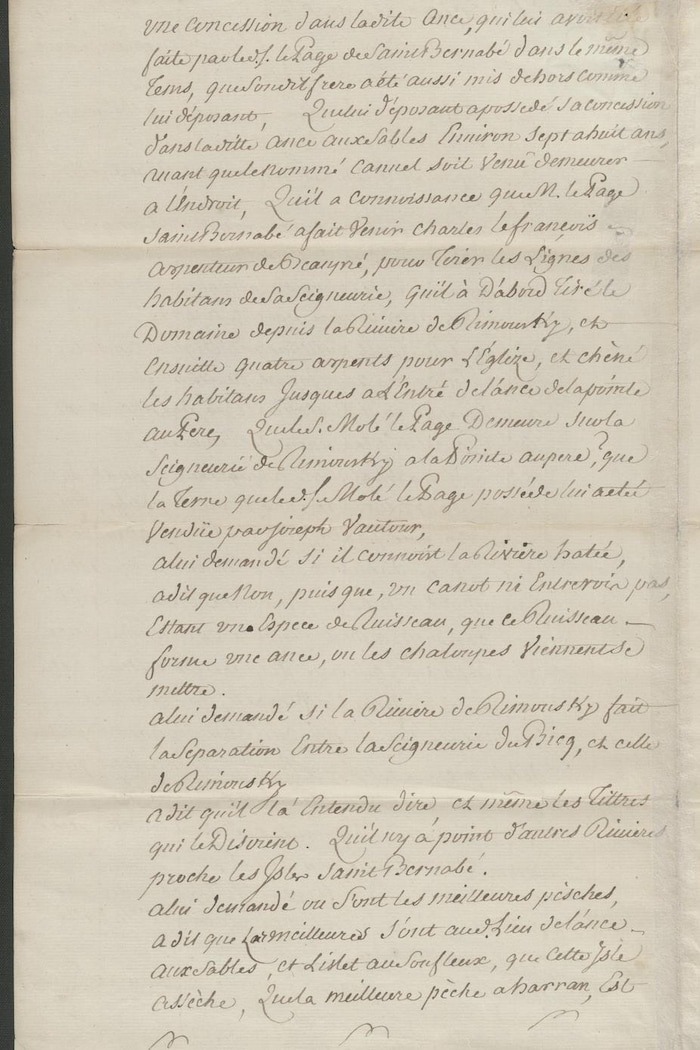 une concession dans ladite ance, qui lui avoit été
faite par led. s. le Page de Saint Bernabé dans le même
tems, que sondit frere a été aussi mis dehors comme
lui déposant, Que lui déposant a possedé sa concession
dans ladite ance aux sables Environ sept a huit ans,
avant que le nommé Canuel soit venû demeurer
a l'Endroit, Qu'il a connoissance que M. le Page
Saint Bernabé a fait venir Charles le françois
arpenteur de pour tirer les Lignes des
habitans de sa seigneurie, qu'il à D'abord tiré le
Domaine depuis la Riviere de Rimousky, et
ensuitte quatre arpents pour L'Eglize, et chêné
les habitans Jusques a L'Entré de l'ance de la pointe
au Pere, Que le s. Molé le Page Demeure sur la
seigneurie de Rimousky a la Pointe au pere, que
la Terre que led. s. Molé le Page possede lui a eté
Vendüe par Joseph Vautour,
a lui demandé si il connoist la Riviere hatée,
a dit que Non, puis que, un canot ni Entreroit pas,
Estant une Espece de Ruisseau, que ce Ruisseau
forme une ance, ou les chaloupes viennent se
mettre.
a lui demandé si la Riviere de Rimousky fait
la separation Entre la seigneurie du Bicq, et celle
de Rimousky
a dit qu'il l'a Entendu dire et même les Tittres
qui le Disoient. Qu'il ny à point d'autres Rivieres
proche les Isles Saint Bernabé.
a lui demandé ou sont les meilleures pêsches,
a dit que Les meilleures sont aud. Lieu de l'ance
aux sables, et L'islet au soufleux, que cette Isle
assèche, Que la meilleure pêche a harran, Est